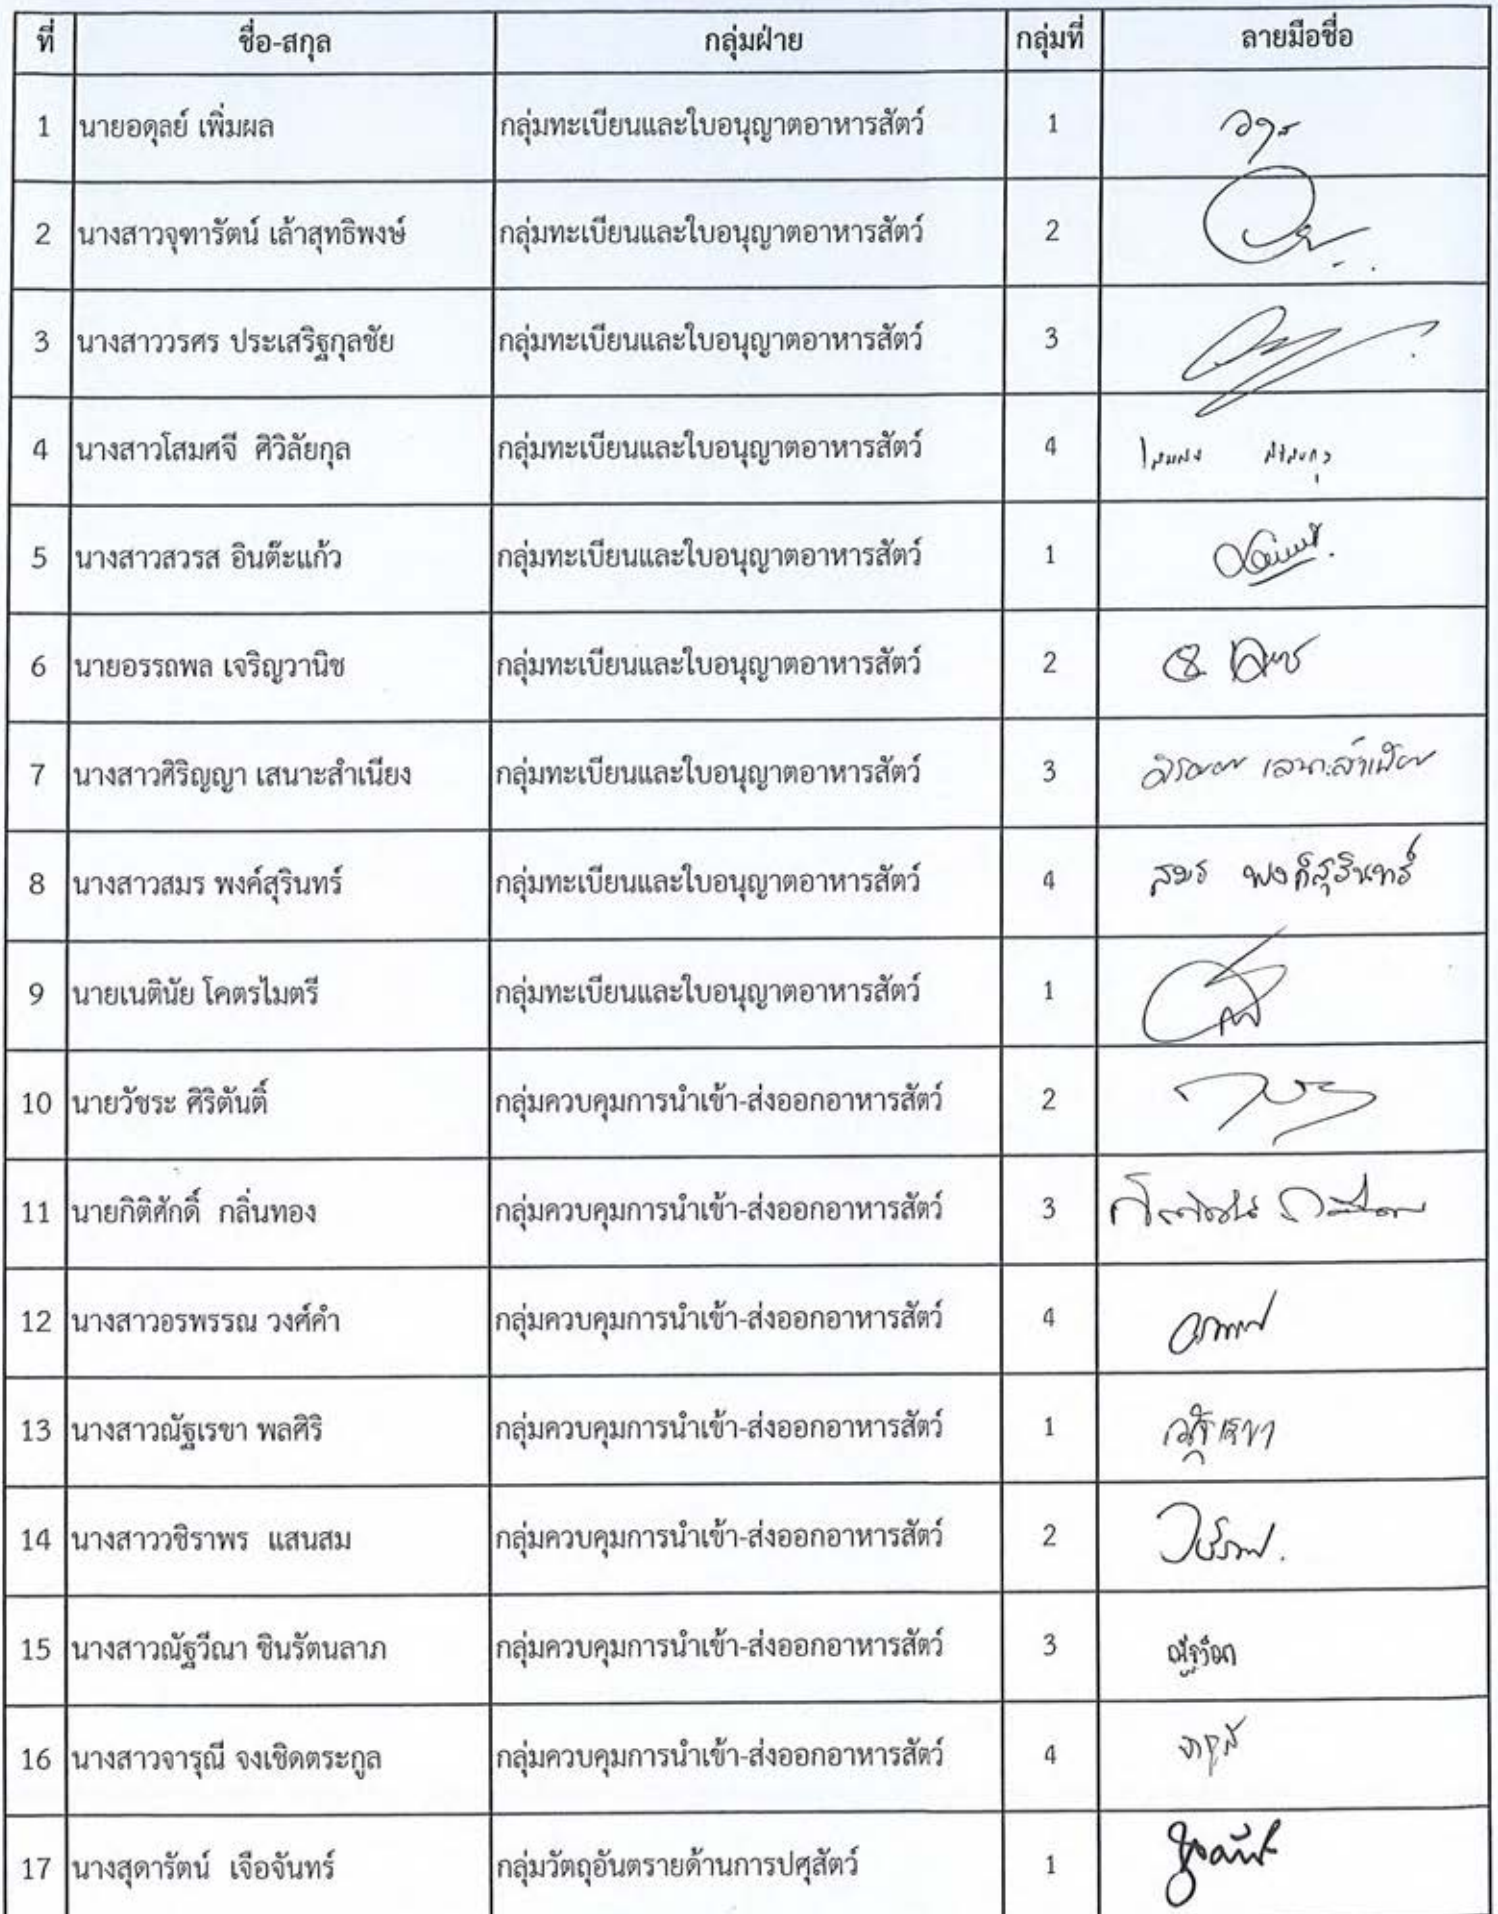 ที่ ชื่อ-สกุล กลุ่มฝ่าย กลุ่มที่ ลายมือชื่อ
1 นายอดุลย์ เพิ่มผล กลุ่มทะเบียนและใบอนุญาตอาหารสัตว์ 1
2 นางสาวจุฑารัตน์ เล้าสุทธิพงษ์ กลุ่มทะเบียนและใบอนุญาตอาหารสัตว์ 2
3 นางสาววรศร ประเสริฐกุลชัย กลุ่มทะเบียนและใบอนุญาตอาหารสัตว์ 3
4 นางสาวโสมศจี ศิวิลัยกุล กลุ่มทะเบียนและใบอนุญาตอาหารสัตว์ 4
5 นางสาวสวรส อินต๊ะแก้ว กลุ่มทะเบียนและใบอนุญาตอาหารสัตว์ 1
6 นายอรรถพล เจริญวานิช กลุ่มทะเบียนและใบอนุญาตอาหารสัตว์ 2
7 นางสาวศิริญญา เสนาะสำเนียง กลุ่มทะเบียนและใบอนุญาตอาหารสัตว์ 3
8 นางสาวสมร พงค์สุรินทร์ กลุ่มทะเบียนและใบอนุญาตอาหารสัตว์ 4 สมร พงค์สุรินทร์
9 นายเนตินัย โคตรไมตรี กลุ่มทะเบียนและใบอนุญาตอาหารสัตว์ 1
10 นายวัชระ ศิริตันติ์ กลุ่มควบคุมการนำเข้า-ส่งออกอาหารสัตว์ 2
11 นายกิติศักดิ์ กลิ่นทอง กลุ่มควบคุมการนำเข้า-ส่งออกอาหารสัตว์ 3
12 นางสาวอรพรรณ วงศ์คำ กลุ่มควบคุมการนำเข้า-ส่งออกอาหารสัตว์ 4
13 นางสาวณัฐเรขา พลศิริ กลุ่มควบคุมการนำเข้า-ส่งออกอาหารสัตว์ 1 ณัฐเรขา
14 นางสาววชิราพร แสนสม กลุ่มควบคุมการนำเข้า-ส่งออกอาหารสัตว์ 2
15 นางสาวณัฐวีณา ชินรัตนลาภ กลุ่มควบคุมการนำเข้า-ส่งออกอาหารสัตว์ 3 ณัฐวีณา
16 นางสาวจารุณี จงเชิดตระกูล กลุ่มควบคุมการนำเข้า-ส่งออกอาหารสัตว์ 4
17 นางสุดารัตน์ เจือจันทร์ กลุ่มวัตถุอันตรายด้านการปศุสัตว์ 1